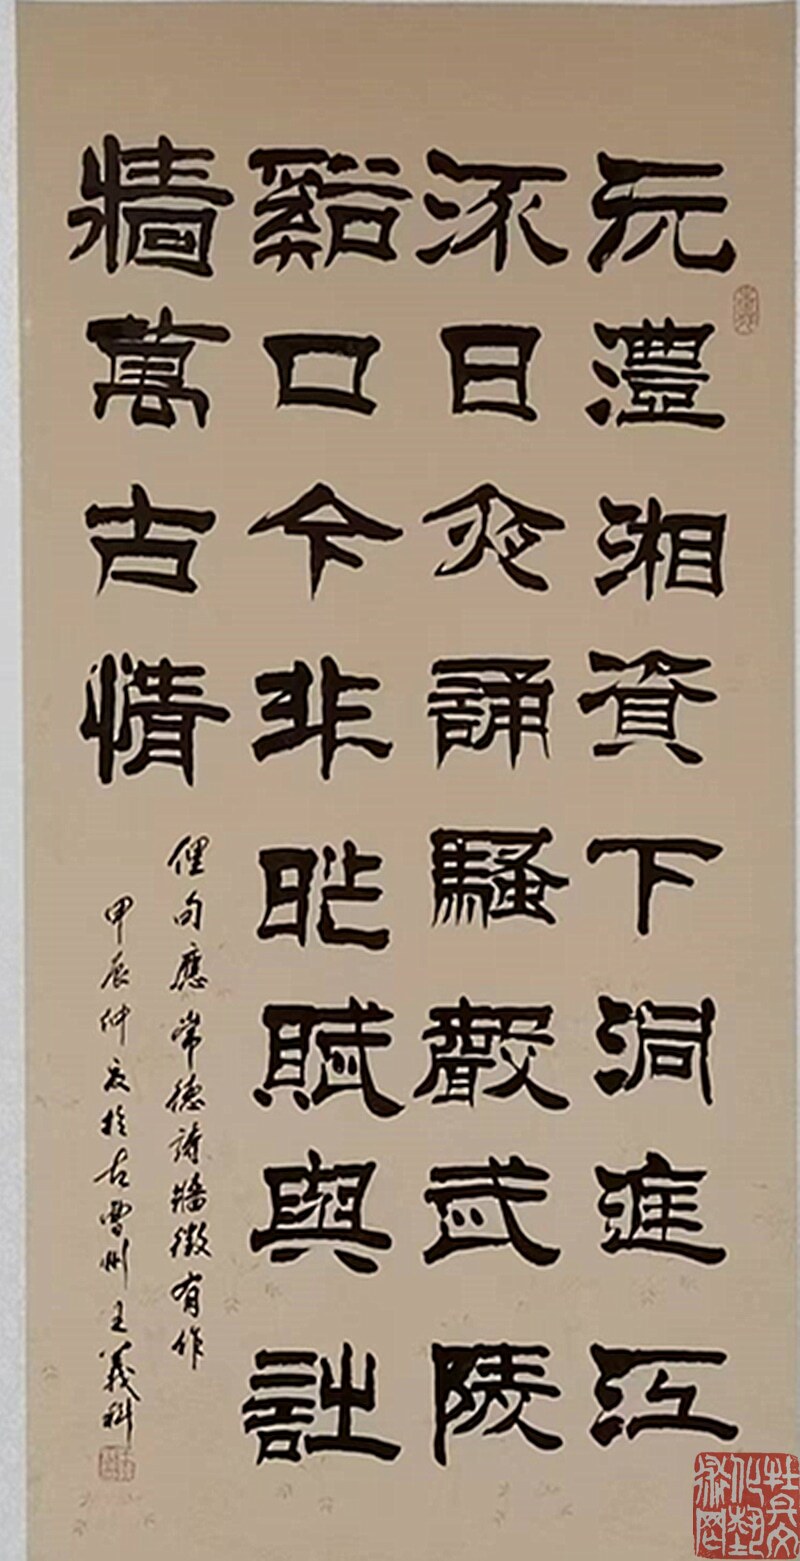 沅澧湘資下洞庭江
流日夜誦騷聲武陵
谿口今非昨賦與詩
牆萬古情
俚句應常德詩牆徵有作
甲辰仲夏於古曹州王義科